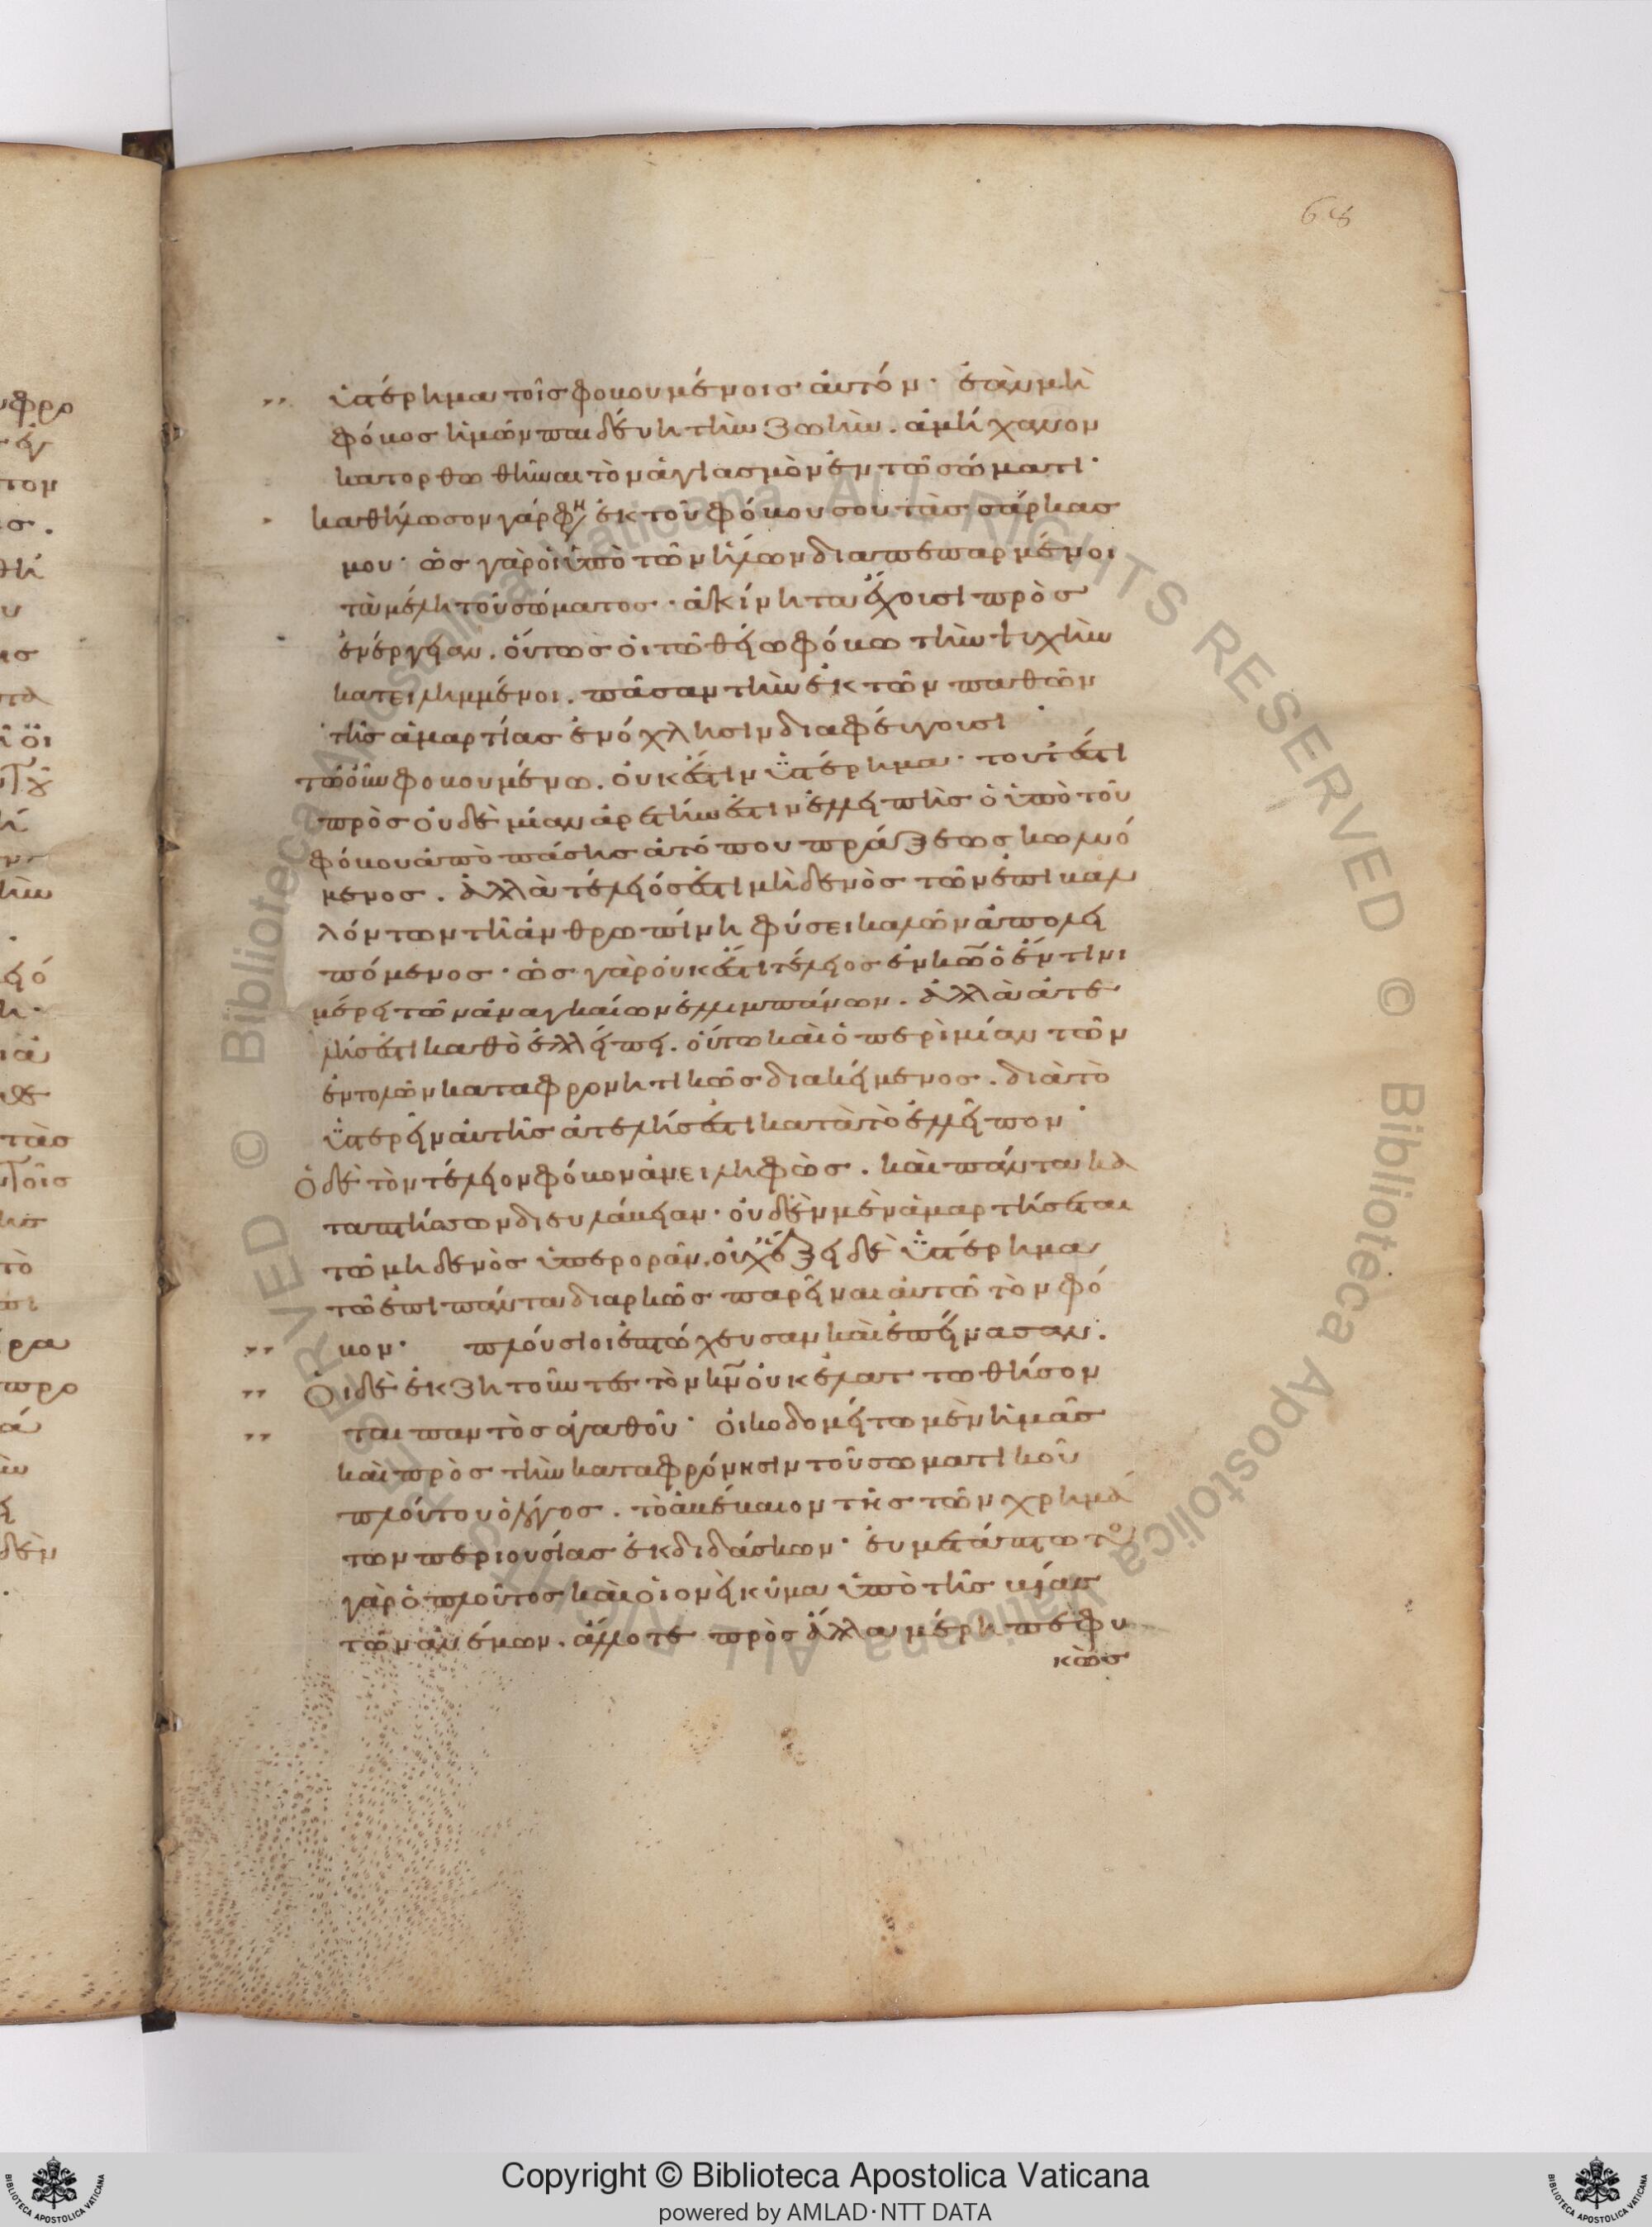 68
ὑστέρημα τοῖς φοβουμένοις αὐτόν· ἐὰν μὴ
φόβος ἡμῶν παιδεύῃ τὴν ζωὴν. ἀμήχανον
κατορθωθῆναι τὸν ἁγιασμὸν ἐν τῶ σώματι·
καθήλωσον γάρ φη ἐκ τοῦ φόβου σου τὰς σάρκας
μου· ὡς γὰρ οἱ ὑπὸ τῶν ἥλων διαπεπαρμένοι
τὰ μέλη τοῦ σώματος. ἀκίνητα ἔχουσι πρὸς
ἐνέργειαν. οὕτως οἱ τῶ θείω φόβω τὴν ψυχὴν
κατειλημμένοι. πᾶσαν τὴν ἐκ τῶν παθῶν
τῆς ἁμαρτίας ἐνόχλησιν διαφεύγουσι·
τῶ οὖν φοβουμένω. οὐκ ἔστιν ὑστέρημα· τουτέστι
πρὸς οὐδὲ μίαν ἀρετὴν ἐστιν ἐλλειπὴς ὁ ὑπὸ τοῦ
φόβου ἀπὸ πάσης ἀτόπου πράξεως κωλυό
μενος. ἀλλὰ τέλειός ἐστι μηδενὸς τῶν ἐπιβαλ
λόντων τῆ ἀνθρωπίνη φύσει καλῶν ἀπολει
πόμενος· ὡς γὰρ οὐκ ἔστι τέλειος ἐν κῶ ὁ ἔν τινι
μέρει τῶν ἀναγκαίων ἐλλιμπάνων. ἀλλὰ ἀτε
λής ἐστι καθὸ ἐλλείπει. οὕτω καὶ ὁ περὶ μίαν τῶν
ἐντολῶν καταφρονητικῶς διακείμενος. διὰ τὸ
ὑστερεῖν αὐτῆς ἀτελής ἐστι κατὰ τὸ ἐλλεῖπον·
Ὁ δὲ τὸν τέλειον φόβον ἀνειληφὼς. καὶ πάντα κα
ταπτήσσων δι ευλάβειαν. οὐδὲν μὲν ἁμαρτήσεται
τῶ μηδενὸς ὑπερορᾶν. οὐχ ἕξει δὲ ὑστέρημα
τῶ ἐπι πάντα διαρκῶς παρεῖναι αὐτῶ τὸν φό
βον· πλούσιοι ἐπτώχευσαν καὶ ἐπείνασαν.
Οἱ δὲ ἐκζητοῦντες τὸν κν̅ οὐκ ἐλαττωθήσον
ται παντὸς ἀγαθοῦ· οἰκοδομείτω μὲν ἡμᾶς
καὶ πρὸς τὴν καταφρόνησιν τοῦ σωματικοῦ
πλούτου ὁ λόγος. τὸ ἀβέβαιον τῆς τῶν χρημά
των περιουσίας ἐκδιδάσκων· εὐμετάπτωτο
γὰρ ὁ πλοῦτος καὶ οἱονεὶ κῦμα ὑπὸ τῆς βίας
τῶν ἀνέμων. ἄλλοτε πρὸς ἄλλα μέρη πεφυ
κὼς
Copyright © Biblioteca Apostolica Vaticana
powered by AMLAD·NTT DATA